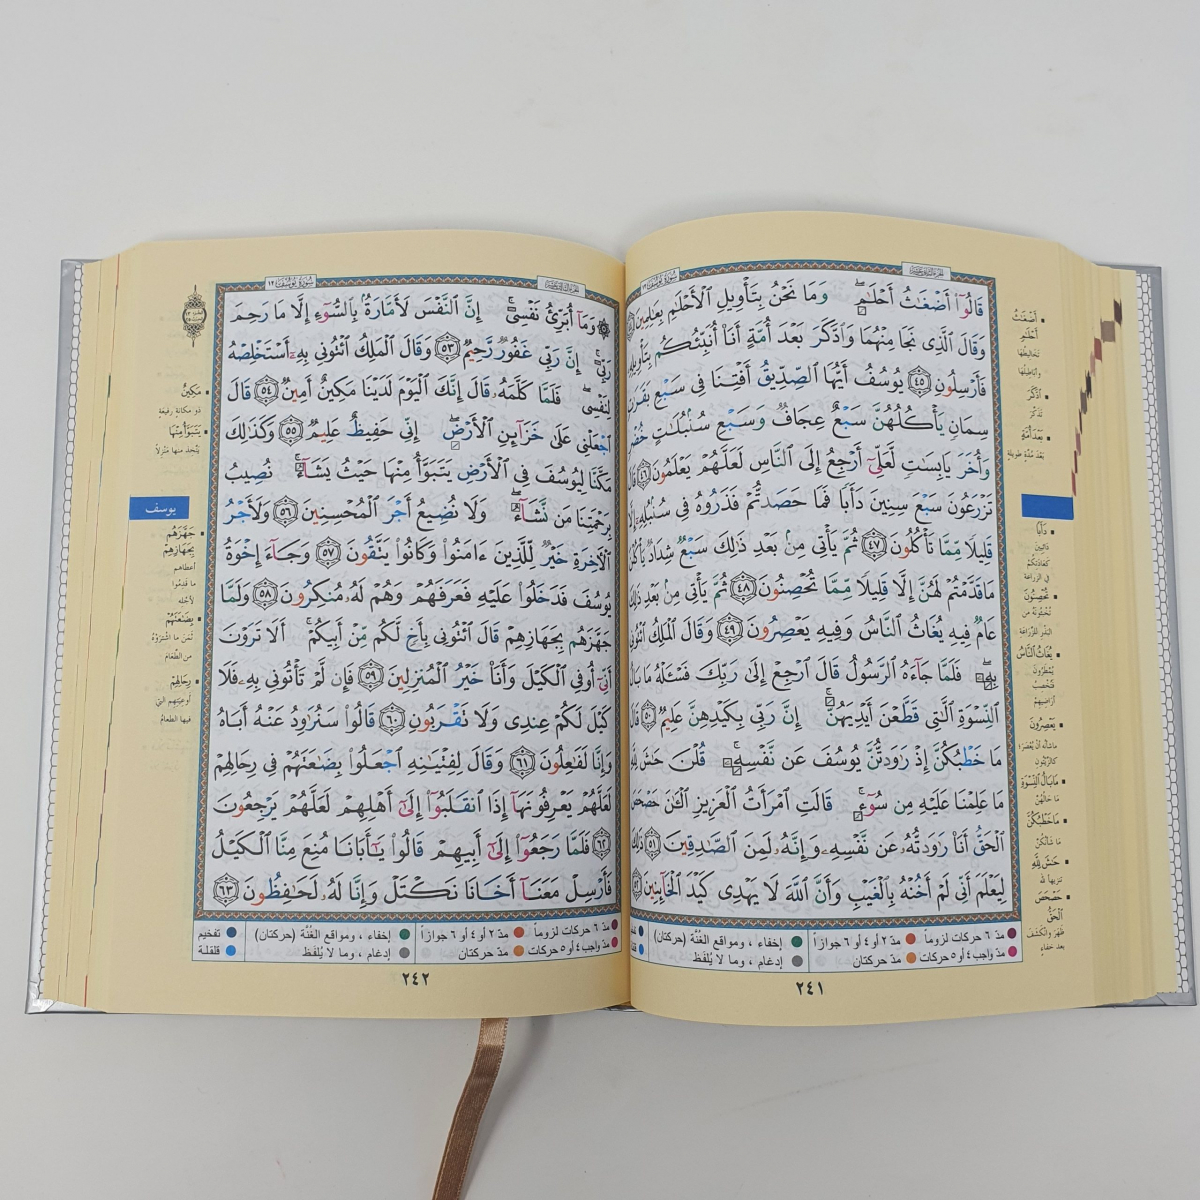 قَالُوٓا۟ أَضْغَٰثُ أَحْلَٰمٍ وَمَا نَحْنُ بِتَأْوِيلِ ٱلْأَحْلَٰمِ بِعَٰلِمِينَ
وَقَالَ ٱلَّذِى نَجَا مِنْهُمَا وَٱدَّكَرَ بَعْدَ أُمَّةٍ أَنَا۠ أُنَبِّئُكُم بِتَأْوِيلِهِۦ
فَأَرْسِلُونِ ٤٥ يُوسُفُ أَيُّهَا ٱلصِّدِّيقُ أَفْتِنَا فِى سَبْعِ بَقَرَٰتٍ
سِمَانٍ يَأْكُلُهُنَّ سَبْعٌ عِجَافٌ وَسَبْعِ سُنۢبُلَٰتٍ خُضْرٍ
وَأُخَرَ يَابِسَٰتٍ لَّعَلِّىٓ أَرْجِعُ إِلَى ٱلنَّاسِ لَعَلَّهُمْ يَعْلَمُونَ ٤٦ قَالَ
تَزْرَعُونَ سَبْعَ سِنِينَ دَأَبًا فَمَا حَصَدتُّمْ فَذَرُوهُ فِى سُنۢبُلِهِۦٓ إِلَّا
قَلِيلًا مِّمَّا تَأْكُلُونَ ٤٧ ثُمَّ يَأْتِى مِنۢ بَعْدِ ذَٰلِكَ سَبْعٌ شِدَادٌ يَأْكُلْنَ
مَا قَدَّمْتُمْ لَهُنَّ إِلَّا قَلِيلًا مِّمَّا تُحْصِنُونَ ٤٨ ثُمَّ يَأْتِى مِنۢ بَعْدِ ذَٰلِكَ
عَامٌ فِيهِ يُغَاثُ ٱلنَّاسُ وَفِيهِ يَعْصِرُونَ ٤٩ وَقَالَ ٱلْمَلِكُ ٱئْتُونِى
بِهِۦ فَلَمَّا جَآءَهُ ٱلرَّسُولُ قَالَ ٱرْجِعْ إِلَىٰ رَبِّكَ فَسْـَٔلْهُ مَا بَالُ
ٱلنِّسْوَةِ ٱلَّٰتِى قَطَّعْنَ أَيْدِيَهُنَّ إِنَّ رَبِّى بِكَيْدِهِنَّ عَلِيمٌ ٥٠ قَالَ
مَا خَطْبُكُنَّ إِذْ رَٰوَدتُّنَّ يُوسُفَ عَن نَّفْسِهِۦ قُلْنَ حَٰشَ لِلَّهِ
مَا عَلِمْنَا عَلَيْهِ مِن سُوٓءٍ قَالَتِ ٱمْرَأَتُ ٱلْعَزِيزِ ٱلْـَٰٔنَ حَصْحَصَ
ٱلْحَقُّ أَنَا۠ رَٰوَدتُّهُۥ عَن نَّفْسِهِۦ وَإِنَّهُۥ لَمِنَ ٱلصَّٰدِقِينَ ٥١ ذَٰلِكَ
لِيَعْلَمَ أَنِّى لَمْ أَخُنْهُ بِٱلْغَيْبِ وَأَنَّ ٱللَّهَ لَا يَهْدِى كَيْدَ ٱلْخَآئِنِينَ ٥٢
أَضْغَٰثُ
أَحْلَٰمٍ
تَخَالِيطُهَا
وَأَبَاطِيلُهَا
ٱدَّكَرَ
تَذَكَّرَ
بَعْدَ أُمَّةٍ
بَعْدَ مُدَّةٍ طويلةٍ
دَأَبًا
دَائِبِينَ
كعَادَتِكُمْ
في الزراعة
تُحْصِنُونَ
تُخَبِّئُونَه من
البَذْرِ للزِّراعَةِ
يُغَاثُ ٱلنَّاسُ
يُمْطَرُونَ
فَتُخْصِبُ
أراضِيهم
يَعْصِرُونَ
ما شأنه أن يُعْصَرَ
كالزَّيْتُونِ
مَا بَالُ ٱلنِّسْوَةِ
مَا حَالُهُنَّ
مَا خَطْبُكُنَّ
مَا شَأْنُكُنَّ
حَٰشَ لِلَّهِ
تنزيهاً لله
حَصْحَصَ
ٱلْحَقُّ
ظَهَرَ وانْكَشَفَ
بعد خفاءٍ
مدّ ٦ حركات لزوماً مدّ ٢ أو ٤ أو ٦ جوازاً إخفاء ، ومواقع الغُنَّة (حركتان)
مدّ واجب ٤ أو ٥ حركات مدّ حركتان إدغام ، وما لا يُلفَظ
٢٤١
وَمَآ أُبَرِّئُ نَفْسِىٓ إِنَّ ٱلنَّفْسَ لَأَمَّارَةٌۢ بِٱلسُّوٓءِ إِلَّا مَا رَحِمَ
رَبِّىٓ إِنَّ رَبِّى غَفُورٌ رَّحِيمٌ ٥٣ وَقَالَ ٱلْمَلِكُ ٱئْتُونِى بِهِۦٓ أَسْتَخْلِصْهُ
لِنَفْسِى فَلَمَّا كَلَّمَهُۥ قَالَ إِنَّكَ ٱلْيَوْمَ لَدَيْنَا مَكِينٌ أَمِينٌ ٥٤ قَالَ
ٱجْعَلْنِى عَلَىٰ خَزَآئِنِ ٱلْأَرْضِ إِنِّى حَفِيظٌ عَلِيمٌ ٥٥ وَكَذَٰلِكَ
مَكَّنَّا لِيُوسُفَ فِى ٱلْأَرْضِ يَتَبَوَّأُ مِنْهَا حَيْثُ يَشَآءُ نُصِيبُ
بِرَحْمَتِنَا مَن نَّشَآءُ وَلَا نُضِيعُ أَجْرَ ٱلْمُحْسِنِينَ ٥٦ وَلَأَجْرُ
ٱلْءَاخِرَةِ خَيْرٌ لِّلَّذِينَ ءَامَنُوا۟ وَكَانُوا۟ يَتَّقُونَ ٥٧ وَجَآءَ إِخْوَةُ
يُوسُفَ فَدَخَلُوا۟ عَلَيْهِ فَعَرَفَهُمْ وَهُمْ لَهُۥ مُنكِرُونَ ٥٨ وَلَمَّا
جَهَّزَهُم بِجَهَازِهِمْ قَالَ ٱئْتُونِى بِأَخٍ لَّكُم مِّنْ أَبِيكُمْ أَلَا تَرَوْنَ
أَنِّىٓ أُوفِى ٱلْكَيْلَ وَأَنَا۠ خَيْرُ ٱلْمُنزِلِينَ ٥٩ فَإِن لَّمْ تَأْتُونِى بِهِۦ فَلَا
كَيْلَ لَكُمْ عِندِى وَلَا تَقْرَبُونِ ٦٠ قَالُوا۟ سَنُرَٰوِدُ عَنْهُ أَبَاهُ
وَإِنَّا لَفَٰعِلُونَ ٦١ وَقَالَ لِفِتْيَٰنِهِ ٱجْعَلُوا۟ بِضَٰعَتَهُمْ فِى رِحَالِهِمْ
لَعَلَّهُمْ يَعْرِفُونَهَآ إِذَا ٱنقَلَبُوٓا۟ إِلَىٰٓ أَهْلِهِمْ لَعَلَّهُمْ يَرْجِعُونَ
٦٢ فَلَمَّا رَجَعُوٓا۟ إِلَىٰٓ أَبِيهِمْ قَالُوا۟ يَٰٓأَبَانَا مُنِعَ مِنَّا ٱلْكَيْلُ
فَأَرْسِلْ مَعَنَآ أَخَانَا نَكْتَلْ وَإِنَّا لَهُۥ لَحَٰفِظُونَ ٦٣
مَكِينٌ
ذو مكانةٍ رفيعةٍ
يَتَبَوَّأُ مِنْهَا
يَتَّخِذُ منها مَنْزِلاً
يوسف
جَهَّزَهُم
بِجَهَازِهِمْ
أعطاهم
ما قَدِمُوا
لأجله
بِضَٰعَتَهُمْ
ثَمَنَ ما اشْتَرَوْهُ
من الطَّعَام
رِحَالِهِمْ
أوعِيَتِهم التي
فيها الطعامُ
مدّ ٦ حركات لزوماً مدّ ٢ أو ٤ أو ٦ جوازاً إخفاء ، ومواقع الغُنَّة (حركتان) تفخيم
مدّ واجب ٤ أو ٥ حركات مدّ حركتان إدغام ، وما لا يُلفَظ قلقلة
٢٤٢